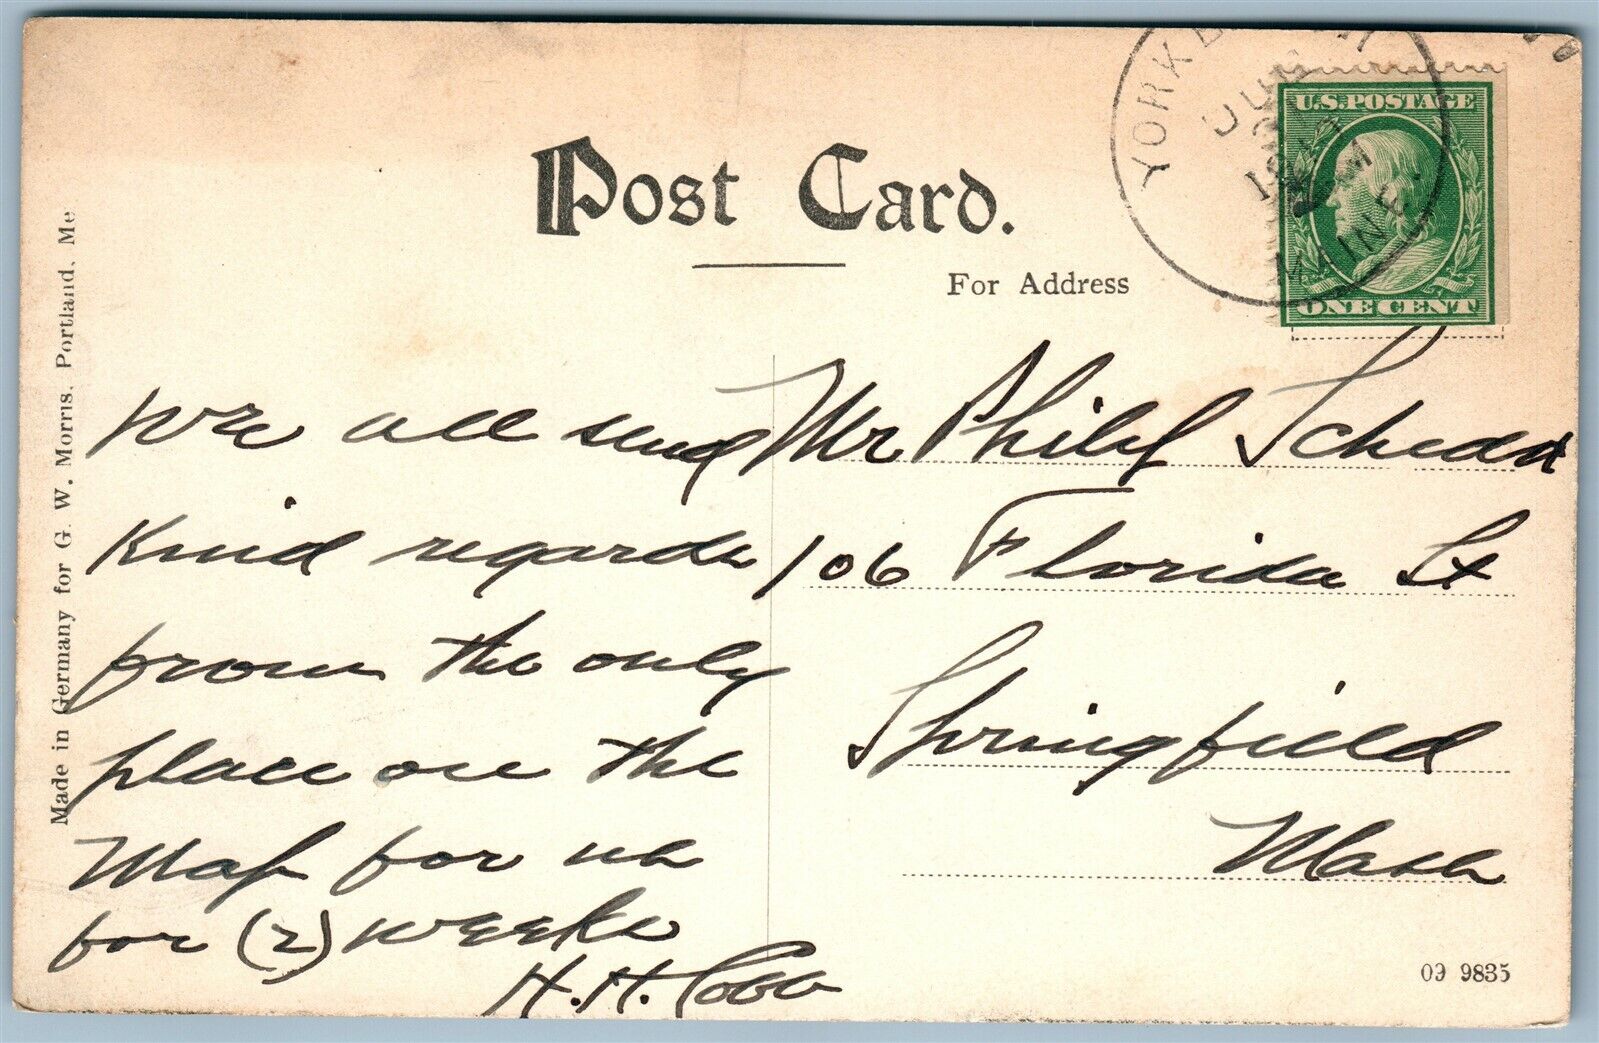 Post Card.
For Address
U.S. POSTAGE
ONE CENT
MAINE.
we all send
Kind regards
from the only
place on the
Map for us
for (2) weeks
H.H. Cobb
Mr Philip Schedd
106 Florida St
Springfield
Mass
Made in Germany for G. W. Morris. Portland. Me
09 9835